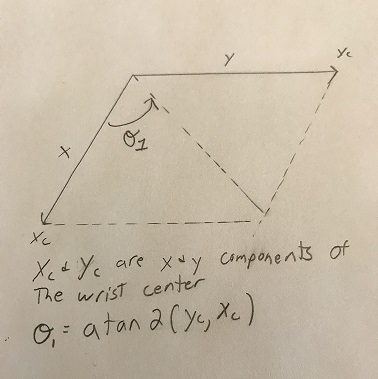 y
Yc
x
θ1
Xc
Xc & Yc are x & y components of
The wrist center
θ1 = atan2(yc, xc)